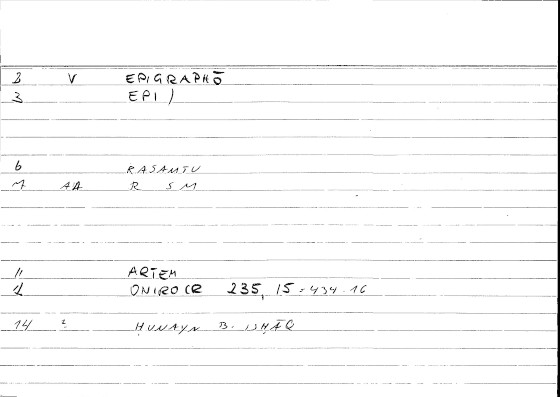 2 V EPIGRAPHŌ
3 EPI )
6 RASAMTU
7 AA R S M
11 ARTEM
12 ONIROCR 235, 15 = 434.16
14 2 ḤUNAYN B. ISḤĀQ